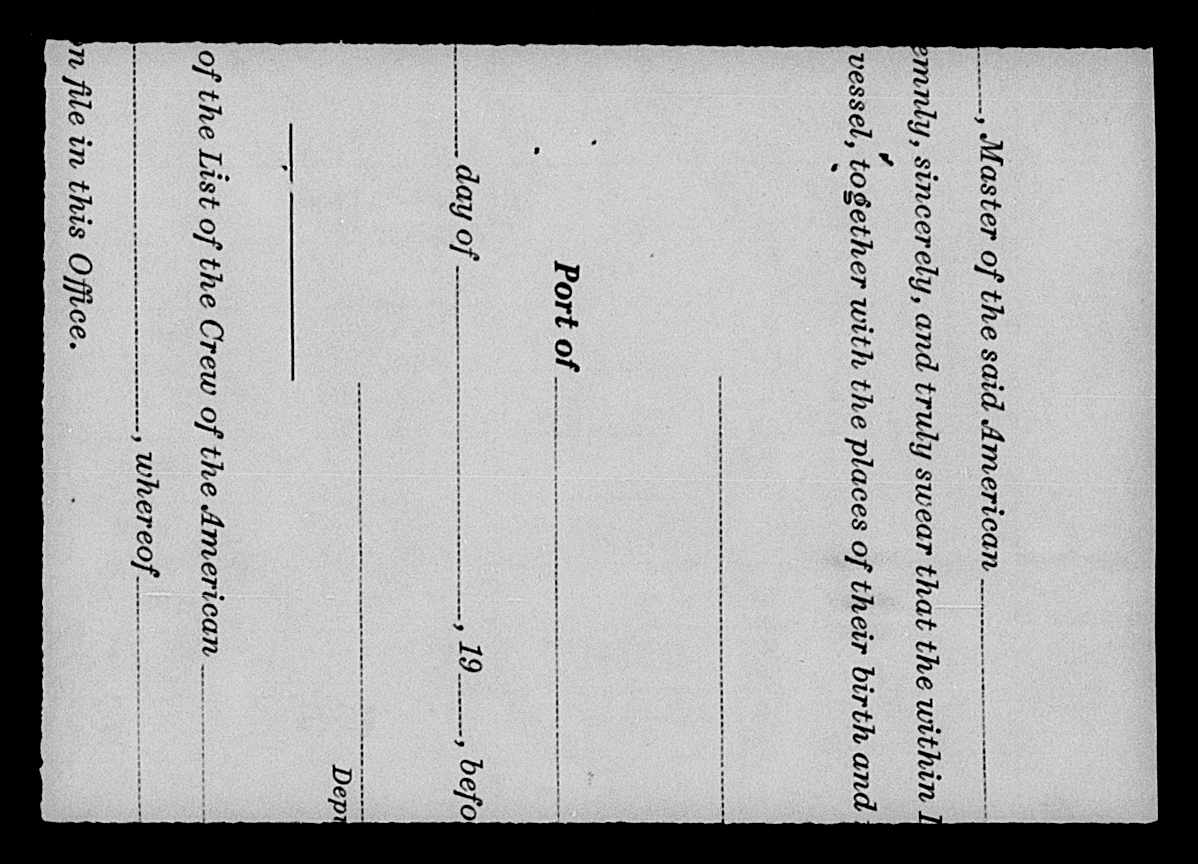 , Master of the said American
emnly, sincerely, and truly swear that the within
vessel, together with the places of their birth and
Port of
day of , 19 , befo
Depu
of the List of the Crew of the American
, whereof
n file in this Office.